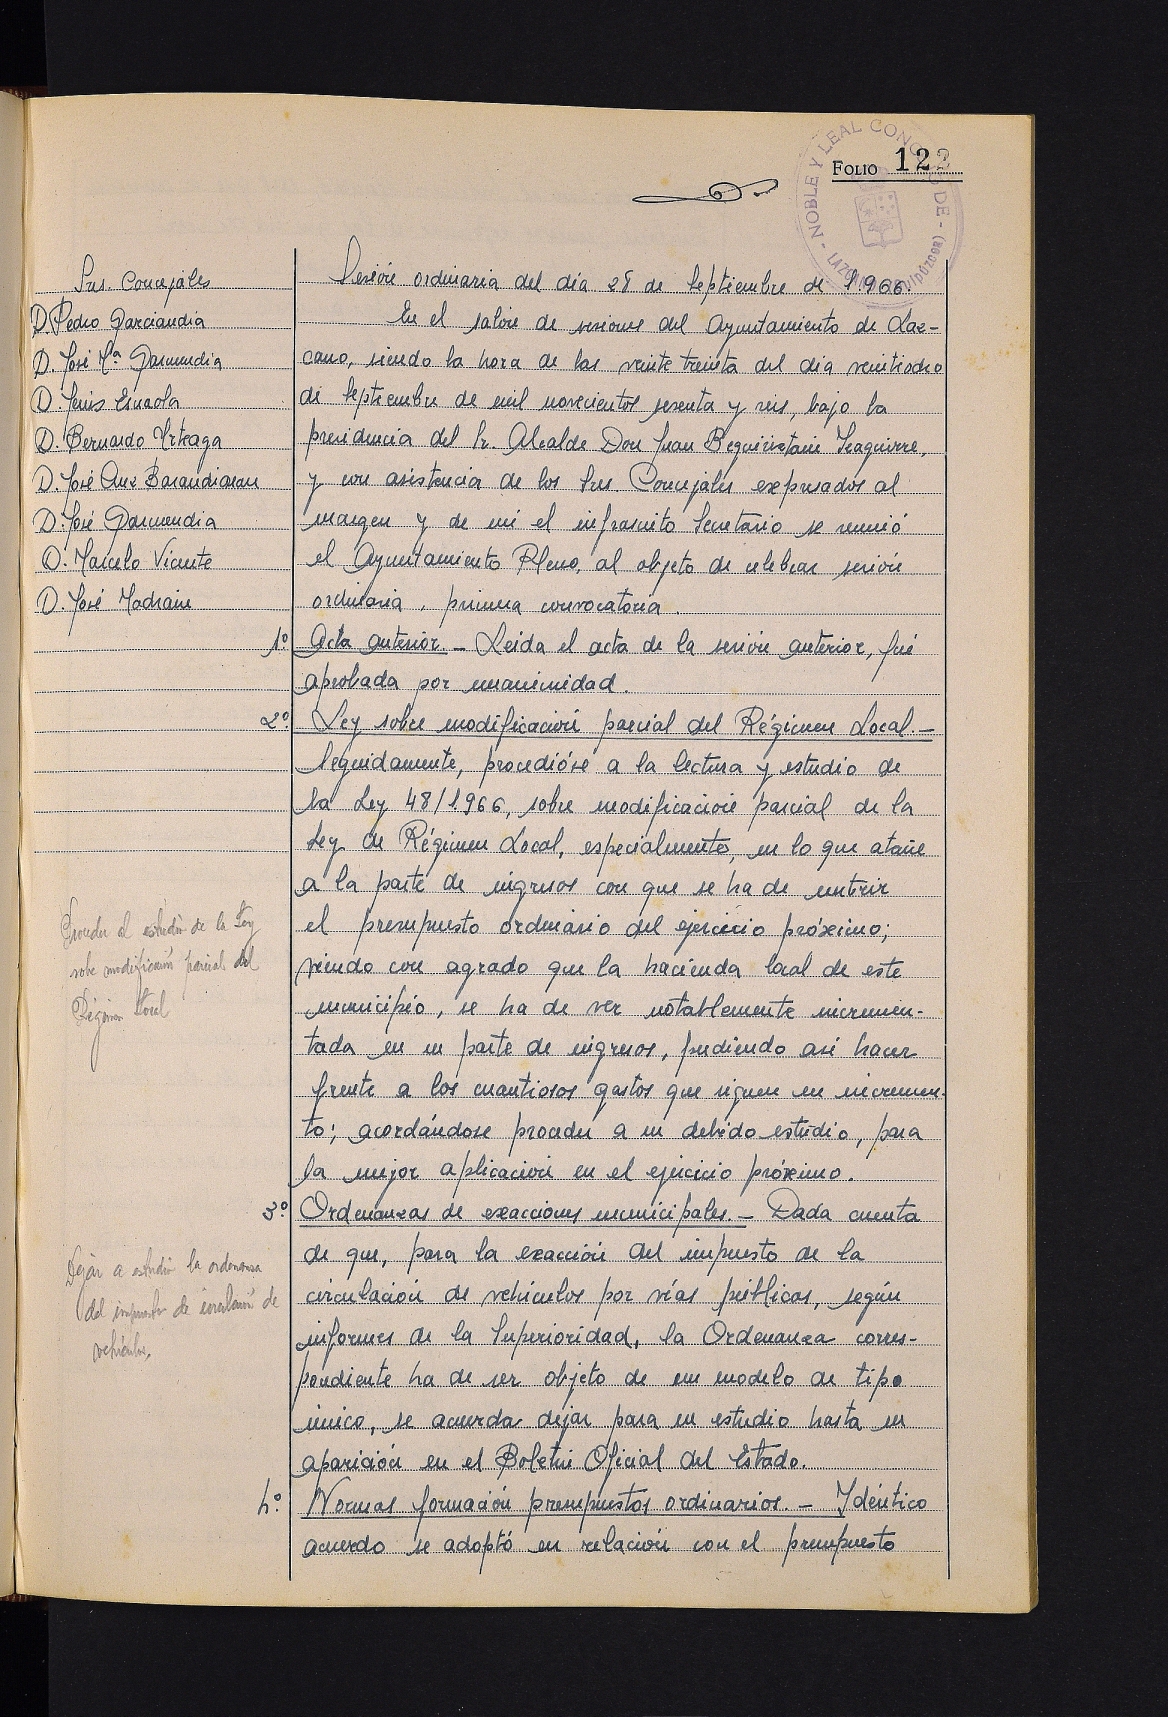 FOLIO 122
NOBLE Y LEAL CONCEJO DE
Srs. Concejales
D. Pedro Garciandia
D. José Mª Garmendia
D. Jesús Esnaola
D. Bernardo Urteaga
D. José Anº Barandiaran
D. José Garmendia
D. Marcelo Vicente
D. José Madrain
Sesión ordinaria del día 28 de Septiembre de 1.966.
En el salón de sesiones del Ayuntamiento de Laz-
cano, siendo la hora de las veinte treinta del día veintiocho
de Septiembre de mil novecientos sesenta y seis, bajo la
presidencia del Sr. Alcalde Don Juan Beguiristain Izaguirre,
y con asistencia de los Srs. Concejales expresados al
margen y de mi el infrascrito Secretario se reunió
el Ayuntamiento Pleno, al objeto de celebrar sesión
ordinaria, primera convocatoria.
1º Acta anterior.- Leída el acta de la sesión anterior, fué
aprobada por unanimidad.
2º Ley sobre modificación parcial del Régimen Local.-
Seguidamente, procedióse a la lectura y estudio de
la Ley 48/1.966, sobre modificación parcial de la
Ley de Régimen Local, especialmente, en lo que atañe
a la parte de ingresos con que se ha de nutrir
el presupuesto ordinario del ejercicio próximo;
viendo con agrado que la hacienda local de este
municipio, se ha de ver notablemente incremen-
tada en su parte de ingresos, pudiendo así hacer
frente a los cuantiosos gastos que siguen en incremen-
to; acordándose proceder a su debido estudio, para
la mejor aplicación en el ejercicio próximo.
Proceder al estudio de la Ley
sobre modificación parcial del
Régimen Local
3º Ordenanzas de exacciones municipales.- Dada cuenta
de que, para la exacción del impuesto de la
circulación de vehículos por vías públicas, según
informes de la Superioridad, la Ordenanza corres-
pondiente ha de ser objeto de un modelo de tipo
único, se acuerda dejar para su estudio hasta su
aparición en el Boletín Oficial del Estado.
Dejar a estudio la ordenanza
del impuesto de circulación de
vehículos.
4º. Normas formación presupuestos ordinarios.- Idéntico
acuerdo se adoptó en relación con el presupuesto